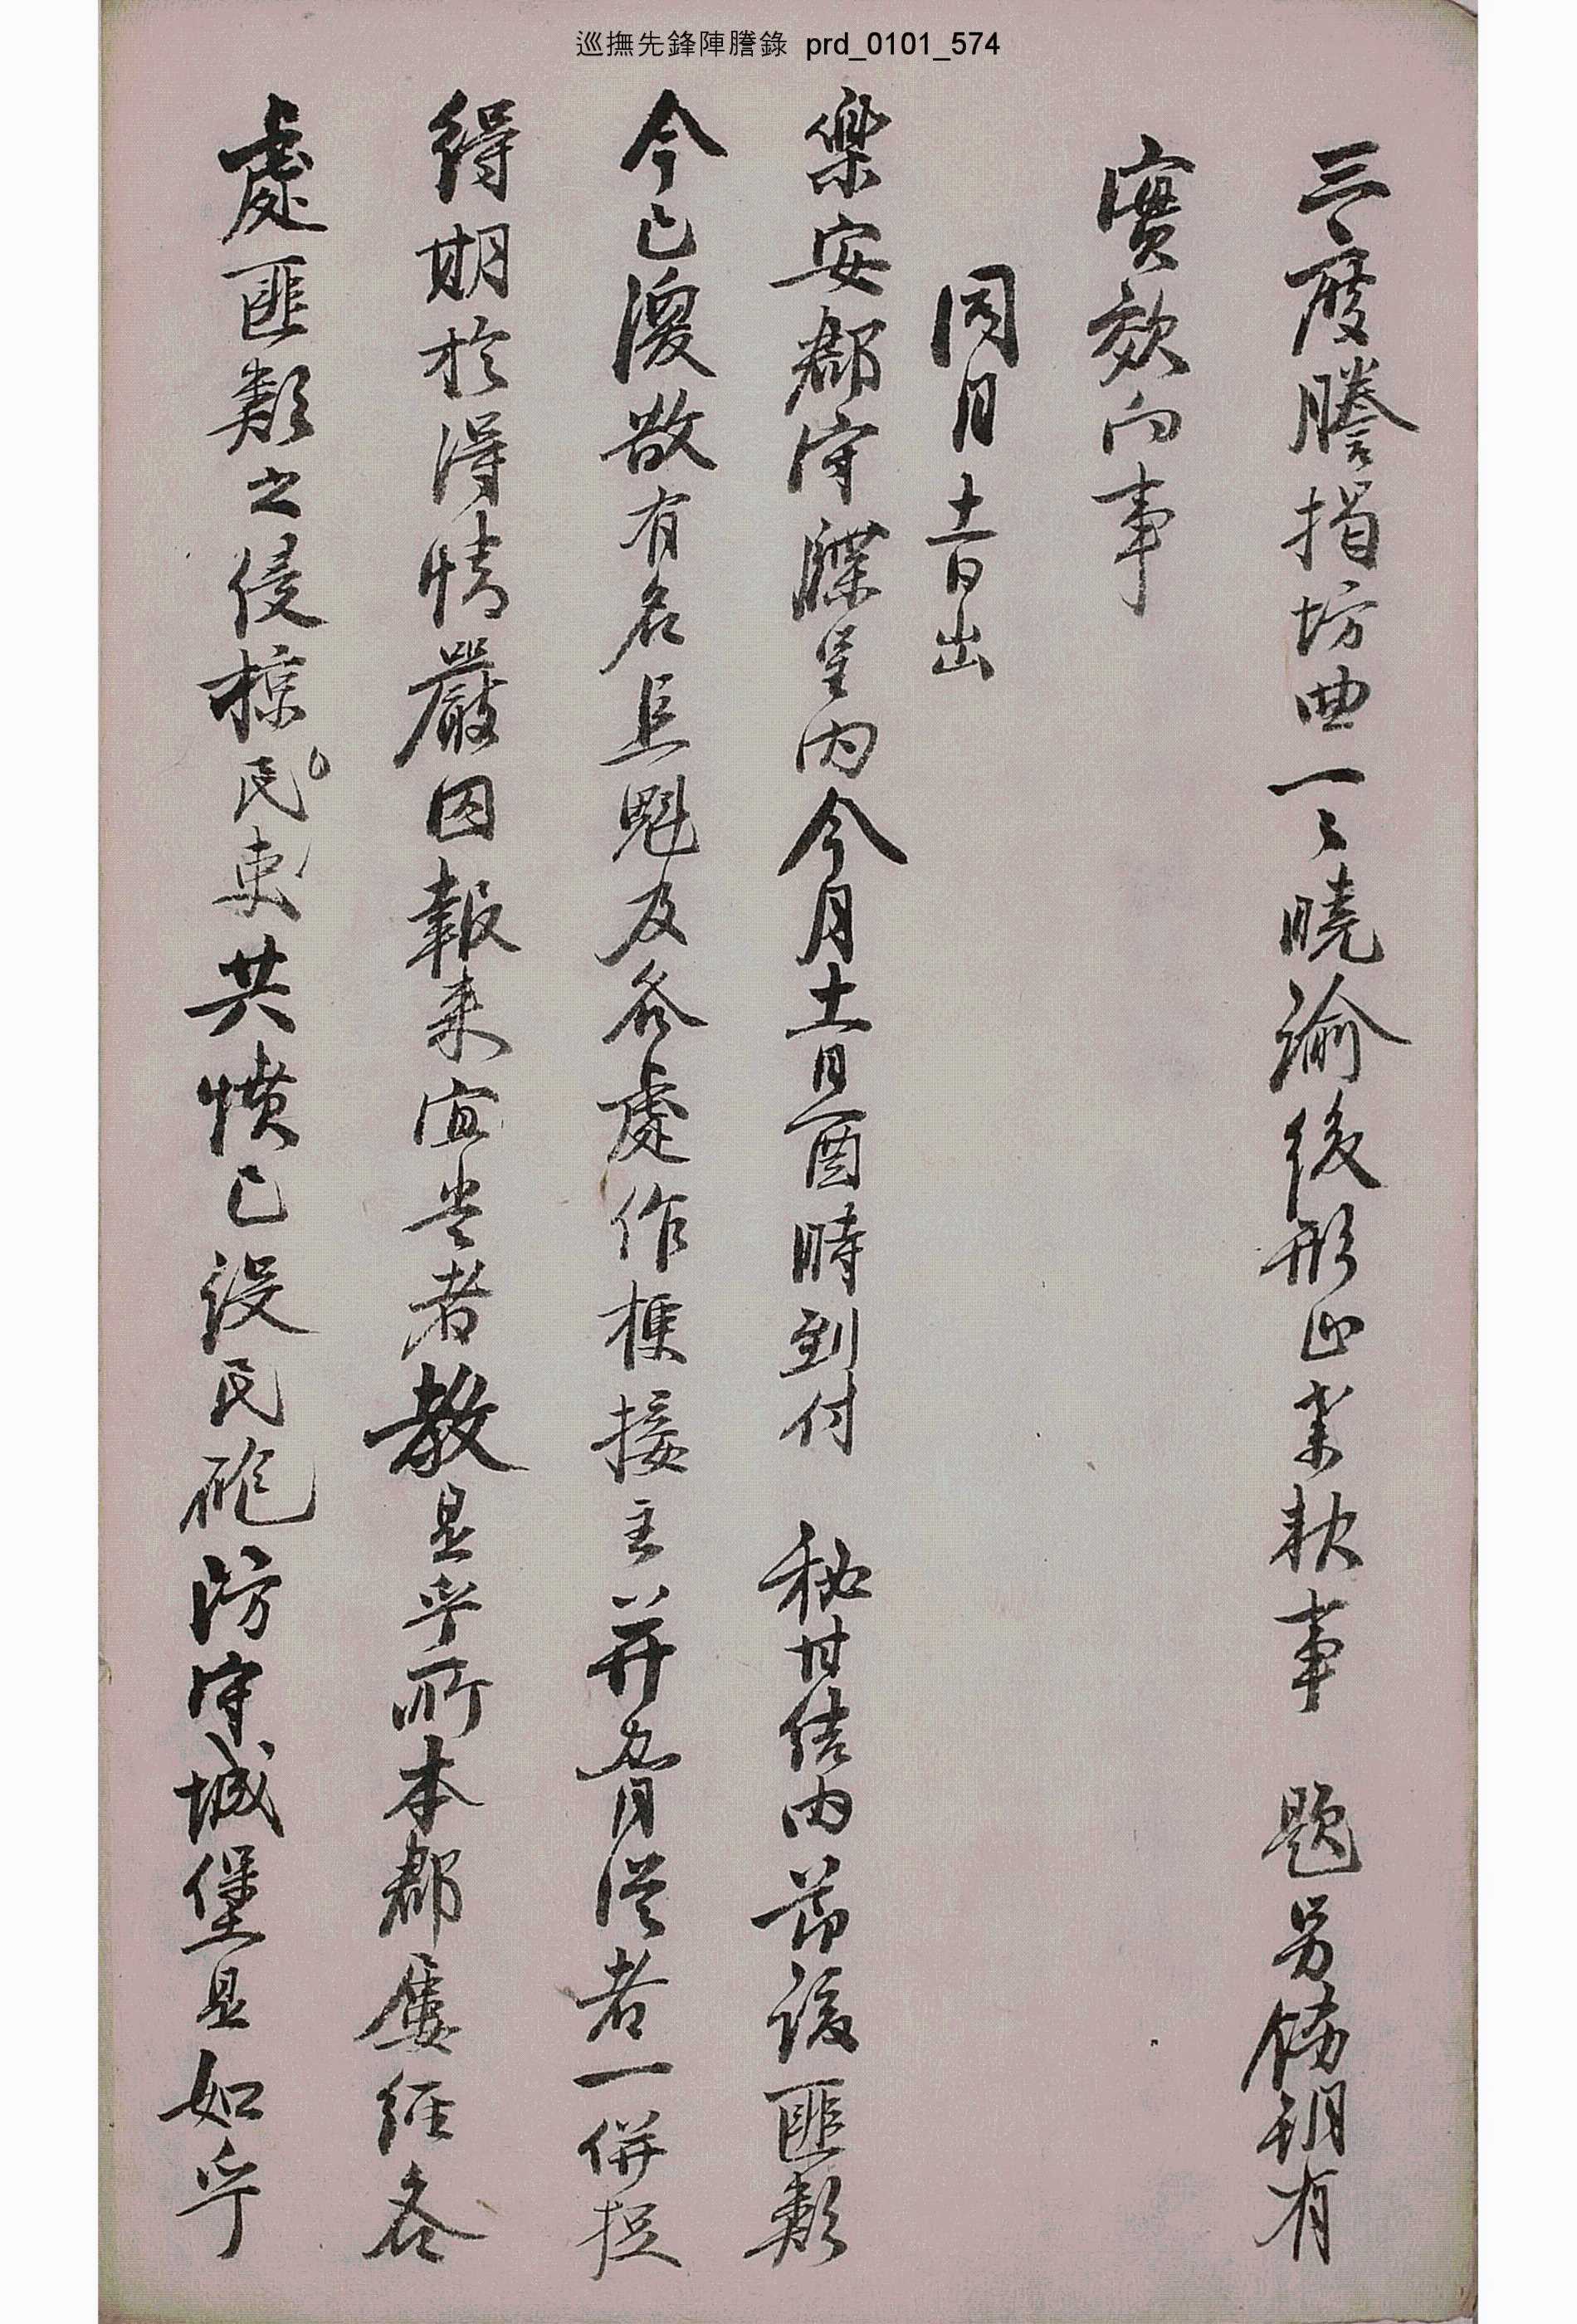 巡撫先鋒陣謄錄 prd_0101_574
三度謄揭坊曲一々曉諭後形止業報事 題另飭期有
實效向事
同月十二日出
樂安郡守牒呈內今月十一日酉時到付 秘甘結內節該匪類
今已渙散有名巨魁及各處作梗接主并為脅從者一併捉
得期於得情嚴囚報來宜當者教是乎所本郡屢經各
處匪類之侵掠民吏共憤已設民砲防守城堡是如乎